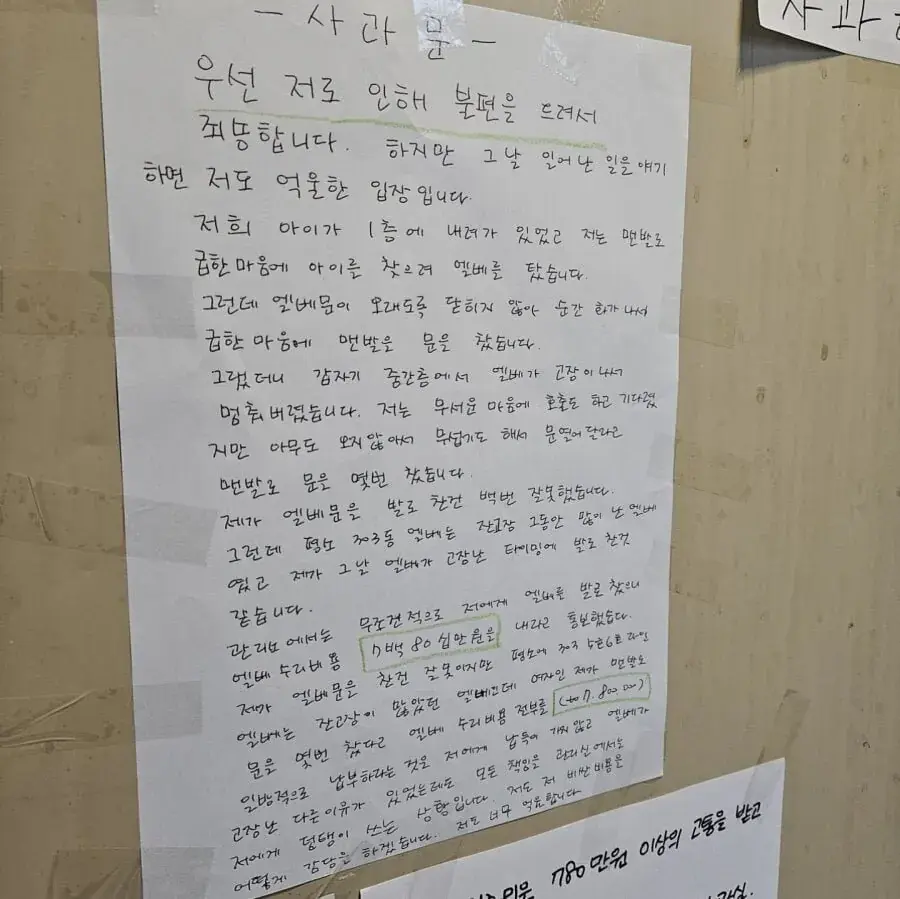 - 사 과 문 -
사 과
우선 저로 인해 불편을 드려서
죄송합니다. 하지만 그날 일어난 일을 얘기
하면 저도 억울한 입장입니다.
저희 아이가 1층에 내려가 있었고 저는 맨발로
급한마음에 아이를 찾으려 엘베를 탔습니다.
그런데 엘베문이 오래도록 닫히지 않아 순간 화가나서
급한마음에 맨발을 문을 찼습니다.
그랬더니 갑자기 중간층에서 엘베가 고장이나서
멈춰버렸습니다. 저는 무서운 마음에 호출도 하고 기다렸
지만 아무도 오지않아서 무섭기도 해서 문열어달라고
맨발로 문을 몇번 찼습니다.
제가 엘베문을 발로 찬건 백번 잘못했습니다.
그런데 평소 303동 엘베는 잔고장 그동안 많이 난 엘베
였고 제가 그날 엘베가 고장난 타이밍에 발로 찬것
같습니다.
관리소에서는 무조건적으로 저에게 엘베를 발로 찼으니
엘베 수리비용 7백 80 십만원을 내라고 통보했습니다.
제가 엘베문을 찬건 잘못이지만 평소에 303 5호6호라인
엘베는 잔고장이 많았던 엘베인데 여자인 제가 맨발로
문을 몇번 찼다고 엘베 수리비용 전부를 7.800.000)
일방적으로 납부하라는 것을 저에게 납득이 가지않고 엘베가
고장난 다른이유가 있었는데도 모든 책임을 관리실에서는
저에게 덤탱이 쓰는 상황입니다. 저도 저 비싼비용을
어떻게 감당을 하겠습니다. 저도 너무 억울합니다
780만원 이상의 고통을 받고